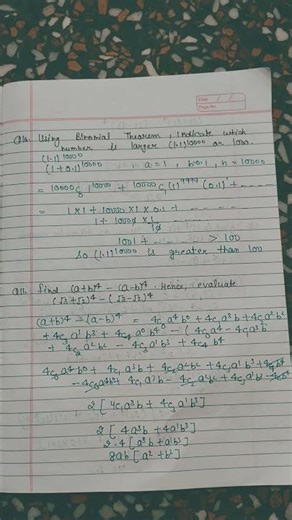 Q10. Using Binomial Theorem, indicate which
number is larger (1.1)^10000 or 1000.
(1.1)^10000
(1+0.1)^10000 a=1, b=0.1, n=10000
= 10000C₀ 1^10000 + 10000C₁ (1)^9999 (0.1)^1 + ----
= 1×1 + 10000 × 1 × 0.1 + ------
1 + 10000 × 1/10
1001 + -------- > 100
so (1.1)^10000 is greater than 100
Q11. find (a+b)^4 - (a-b)^4. Hence, evaluate
(√3+√2)^4 - (√3-√2)^4
(a+b)^4 - (a-b)^4 = 4C₀a^4b^0 + 4C₁a^3b + 4C₂a^2b^2
+ 4C₃a^1b^3 + 4C₄a^0b^4 - (4C₀a^4 - 4C₁a^3b
+ 4C₂a^2b^2 - 4C₃a^1b^3 + 4C₄b^4
4C₀a^4b^0 + 4C₁a^3b + 4C₂a^2b^2 + 4C₃a^1b^3 + 4C₄b^4
- 4C₀a^4b^0 + 4C₁a^3b - 4C₂a^2b^2 + 4C₃a^1b^3 - 4C₄b^4
2[4C₁a^3b + 4C₃a^1b^3]
2[4a^3b + 4a^1b^3]
2·4[a^3b + a^1b^3]
8ab[a^2 + b^2]